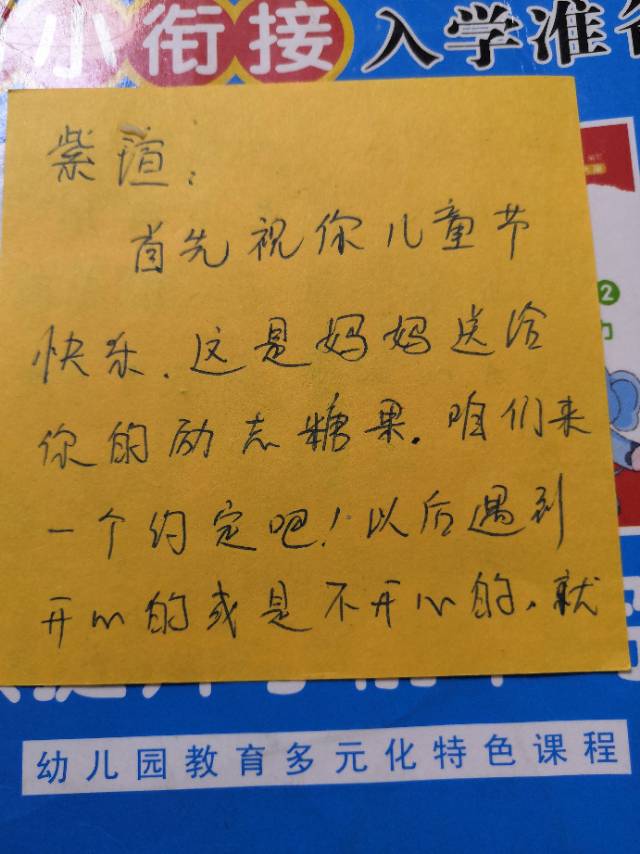 小衔接 入学准备
紫瑄：
首先祝你儿童节
快乐．这是妈妈送给
你的励志糖果．咱们来
一个约定吧！以后遇到
开心的或是不开心的．就
幼儿园教育多元化特色课程